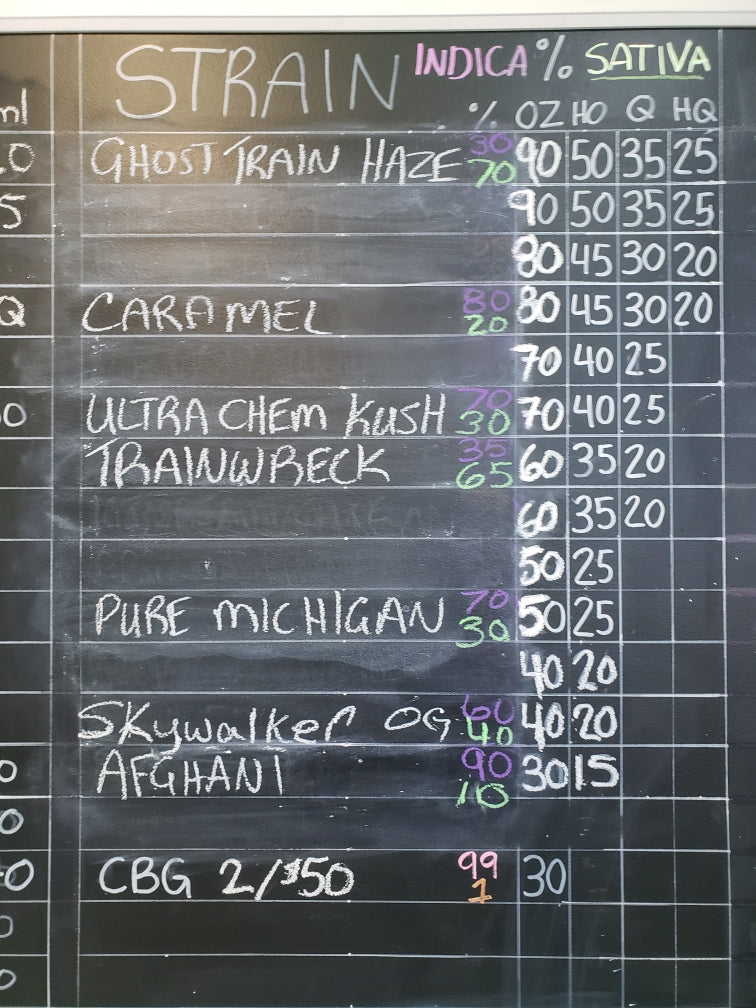 STRAIN INDICA % SATIVA
nl % OZ HO Q HQ
.0 GHOST TRAIN HAZE 30 70 90 50 35 25
5 90 50 35 25
80 45 30 20
Q CARAMEL 80 20 80 45 30 20
70 40 25
0 ULTRA CHEM KUSH 70 30 70 40 25
TRAINWRECK 35 65 60 35 20
60 35 20
50 25
PURE MICHIGAN 70 30 50 25
40 20
SKywalker OG 60 40 40 20
0 AFGHANI 90 10 30 15
0
0 CBG 2/$50 99 1 30
0
0